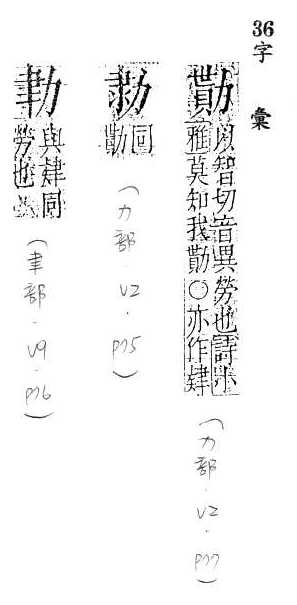 36
字彙
勩
以智切音異勞也詩小
雅莫知我勩○亦作肄
(力部.V2.P77)
同
勩
(力部.V2.P75)
與肄同
勞也
(聿部.V9.P76)